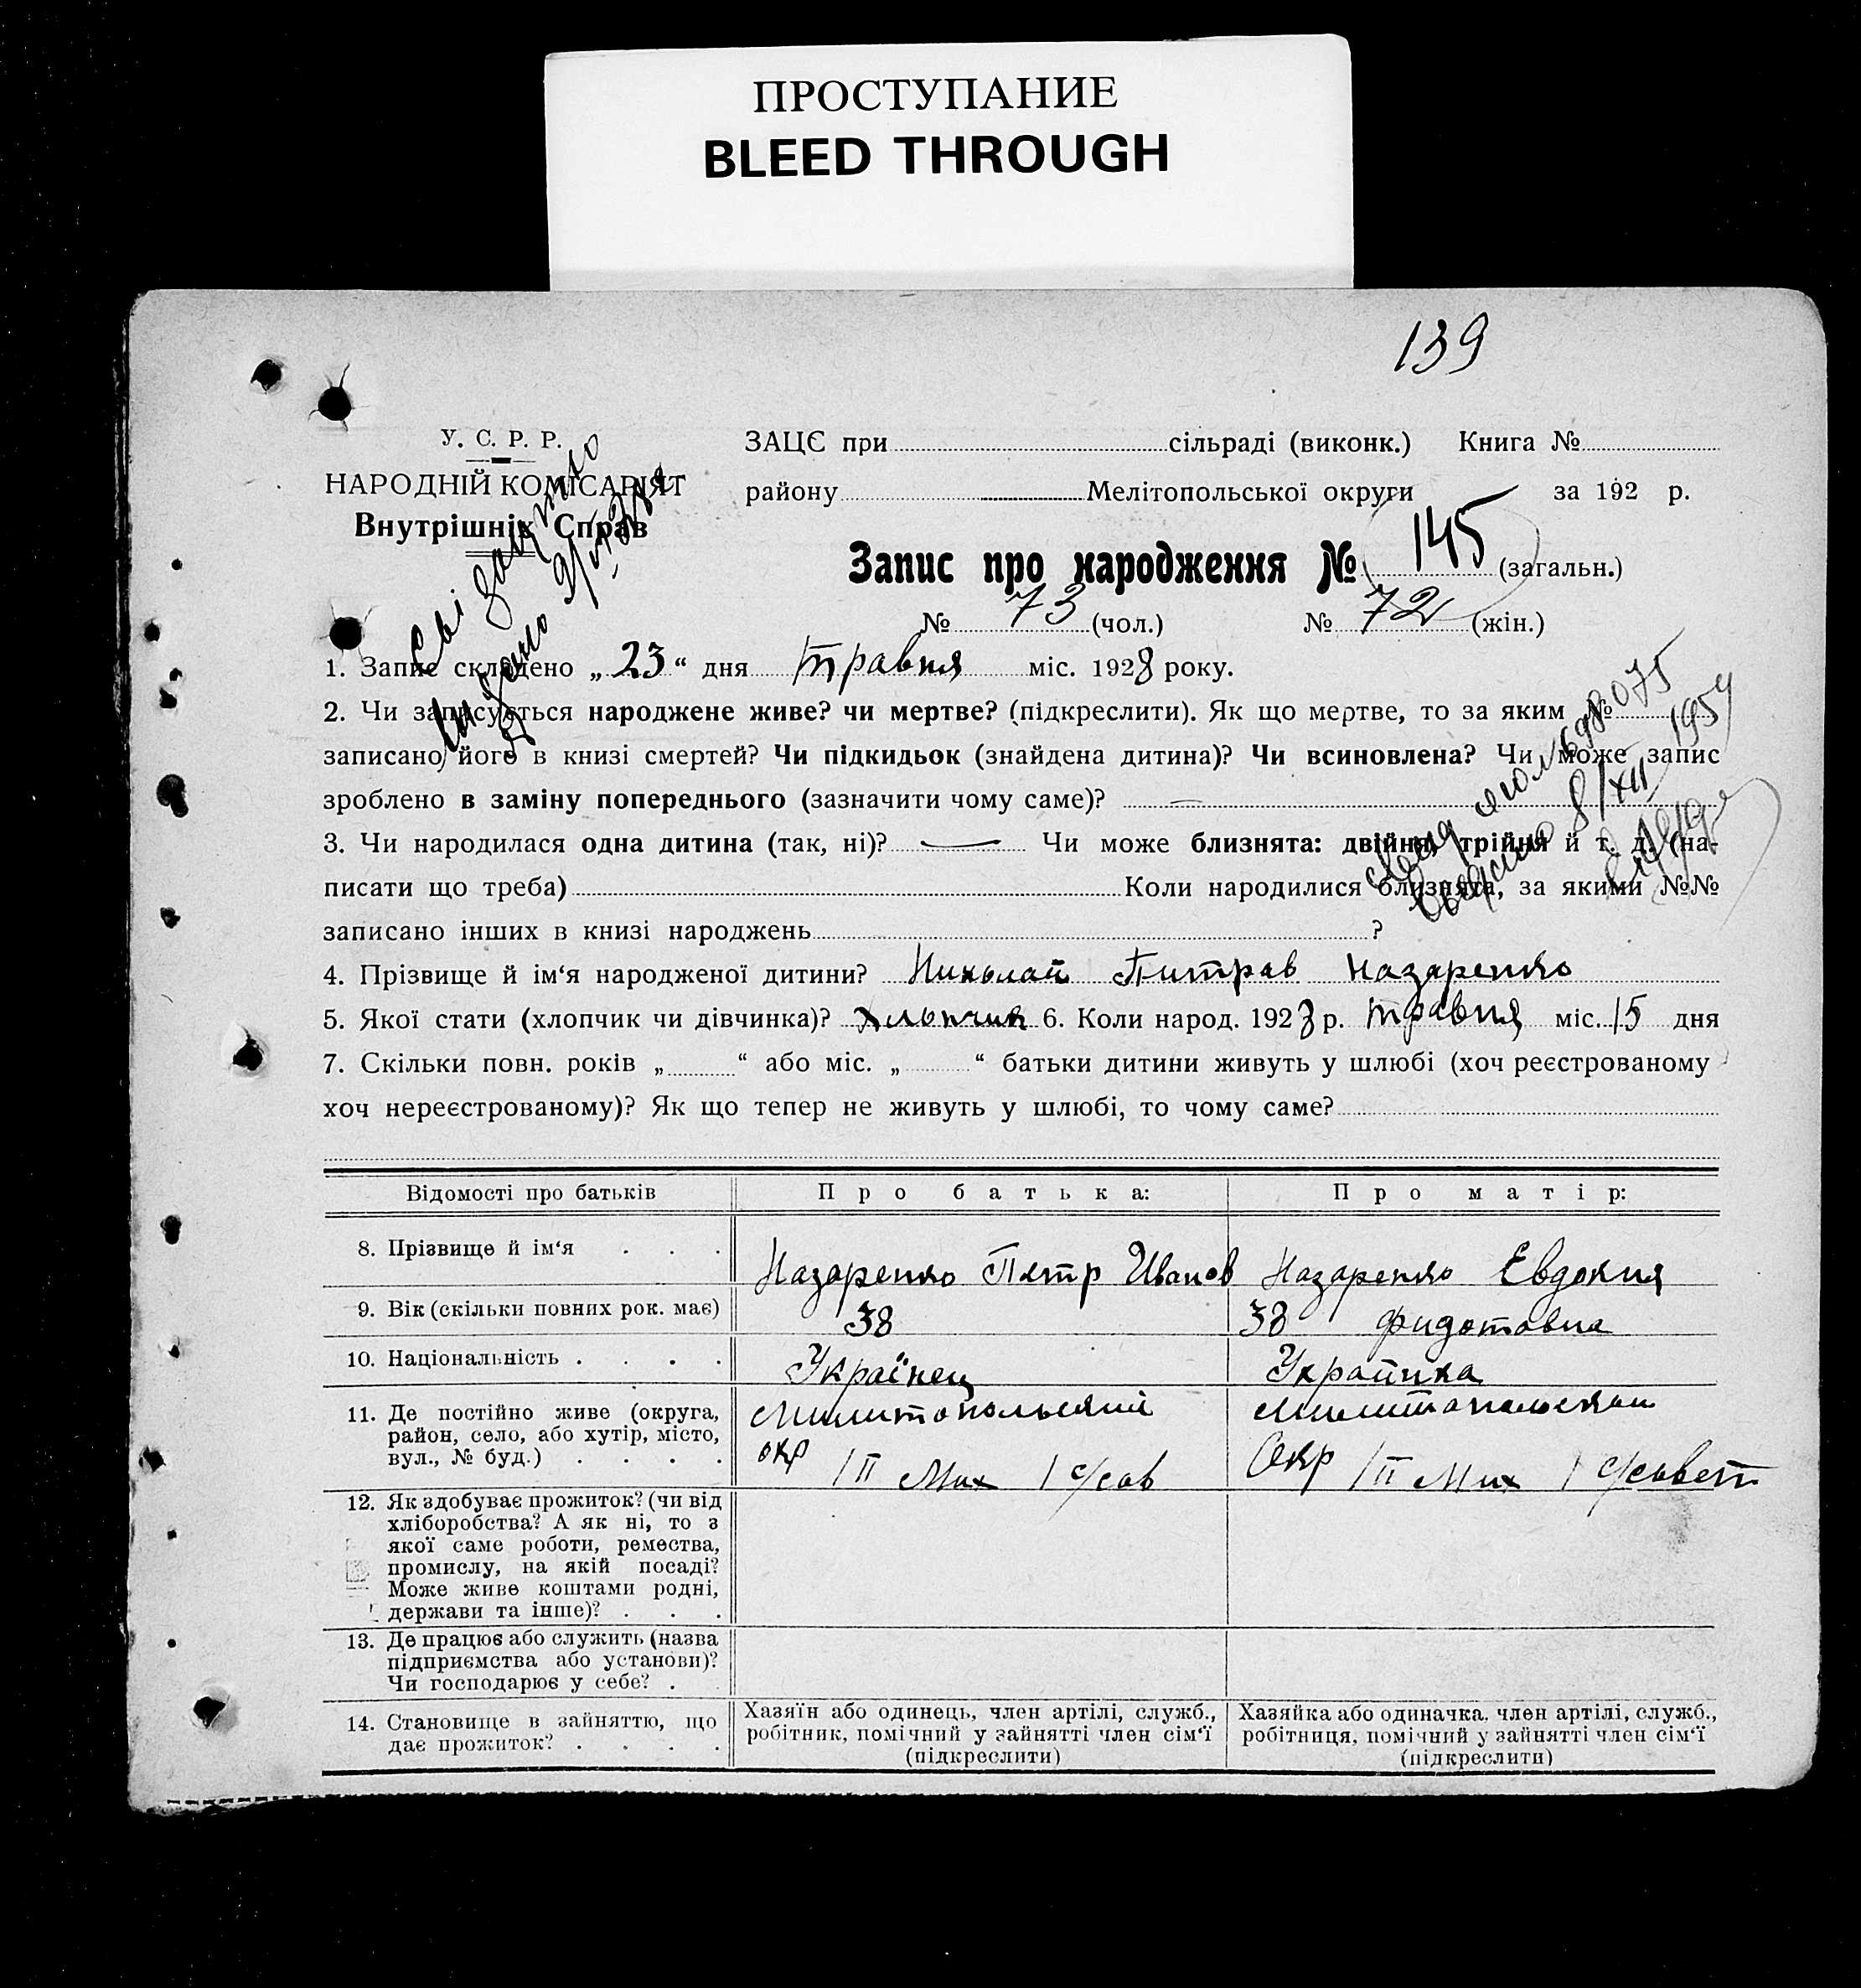 ПРОСТУПАНИЕ
BLEED THROUGH
139
У. С. Р. Р.
НАРОДНІЙ КОМІСАРІЯТ
Внутрішніх Справ
ЗАЦС при сільраді (виконк.) Книга №
району Мелітопольської округи за 192 р.
Запис про народження № 145 (загальн.)
№ 73 (чол.) № 72 (жін.)
1. Запис складено „23“ дня травня міс. 1928 року.
2. Чи записується народжене живе? чи мертве? (підкреслити). Як що мертве, то за яким №
записано його в книзі смертей? Чи підкидьок (знайдена дитина)? Чи всиновлена? Чи може запис
зроблено в заміну попереднього (зазначити чому саме)? —
3. Чи народилася одна дитина (так, ні)? — Чи може близнята: двійня, трійня й т. д. (на-
писати що треба) Коли народилися близнята, за якими №№
записано інших в книзі народжень ?
698075
8/XII 1959
4. Прізвище й ім‘я народженої дитини? Николай Питров Назаренко
5. Якої стати (хлопчик чи дівчинка)? Хлопчик 6. Коли народ. 1928 р. травня міс. 15 дня
7. Скільки повн. років „ “ або міс. „ “ батьки дитини живуть у шлюбі (хоч реєстрованому
хоч нереєстрованому)? Як що тепер не живуть у шлюбі, то чому саме?
Відомості про батьків Про батька: Про матір:
8. Прізвище й ім‘я . . . Назаренко Петр Иванов Назаренко Евдокия
9. Вік (скільки повних рок. має) 38 38 Фидотовна
10. Національність . . . . Українец Украинка
11. Де постійно живе (округа, Милитопольский Милитопольский
район, село, або хутір, місто,
вул., № буд.) . . . . окр / II Мих / с/сов Окр / II Мих / с/совет
12. Як здобуває прожиток? (чи від
хліборобства? А як ні, то з
якої саме роботи, ремества,
промислу, на якій посаді?
Може живе коштами родні,
держави та інше)? . . .
13. Де працює або служить (назва
підприємства або установи)?
Чи господарює у себе? .
14. Становище в зайняттю, що
дає прожиток? . . . .
Хазяїн або одинець, член артілі, служб.,
робітник, помічний у зайнятті член сім‘ї
(підкреслити)
Хазяйка або одиначка, член артілі, служб.,
робітниця, помічний у зайнятті член сім‘ї
(підкреслити)